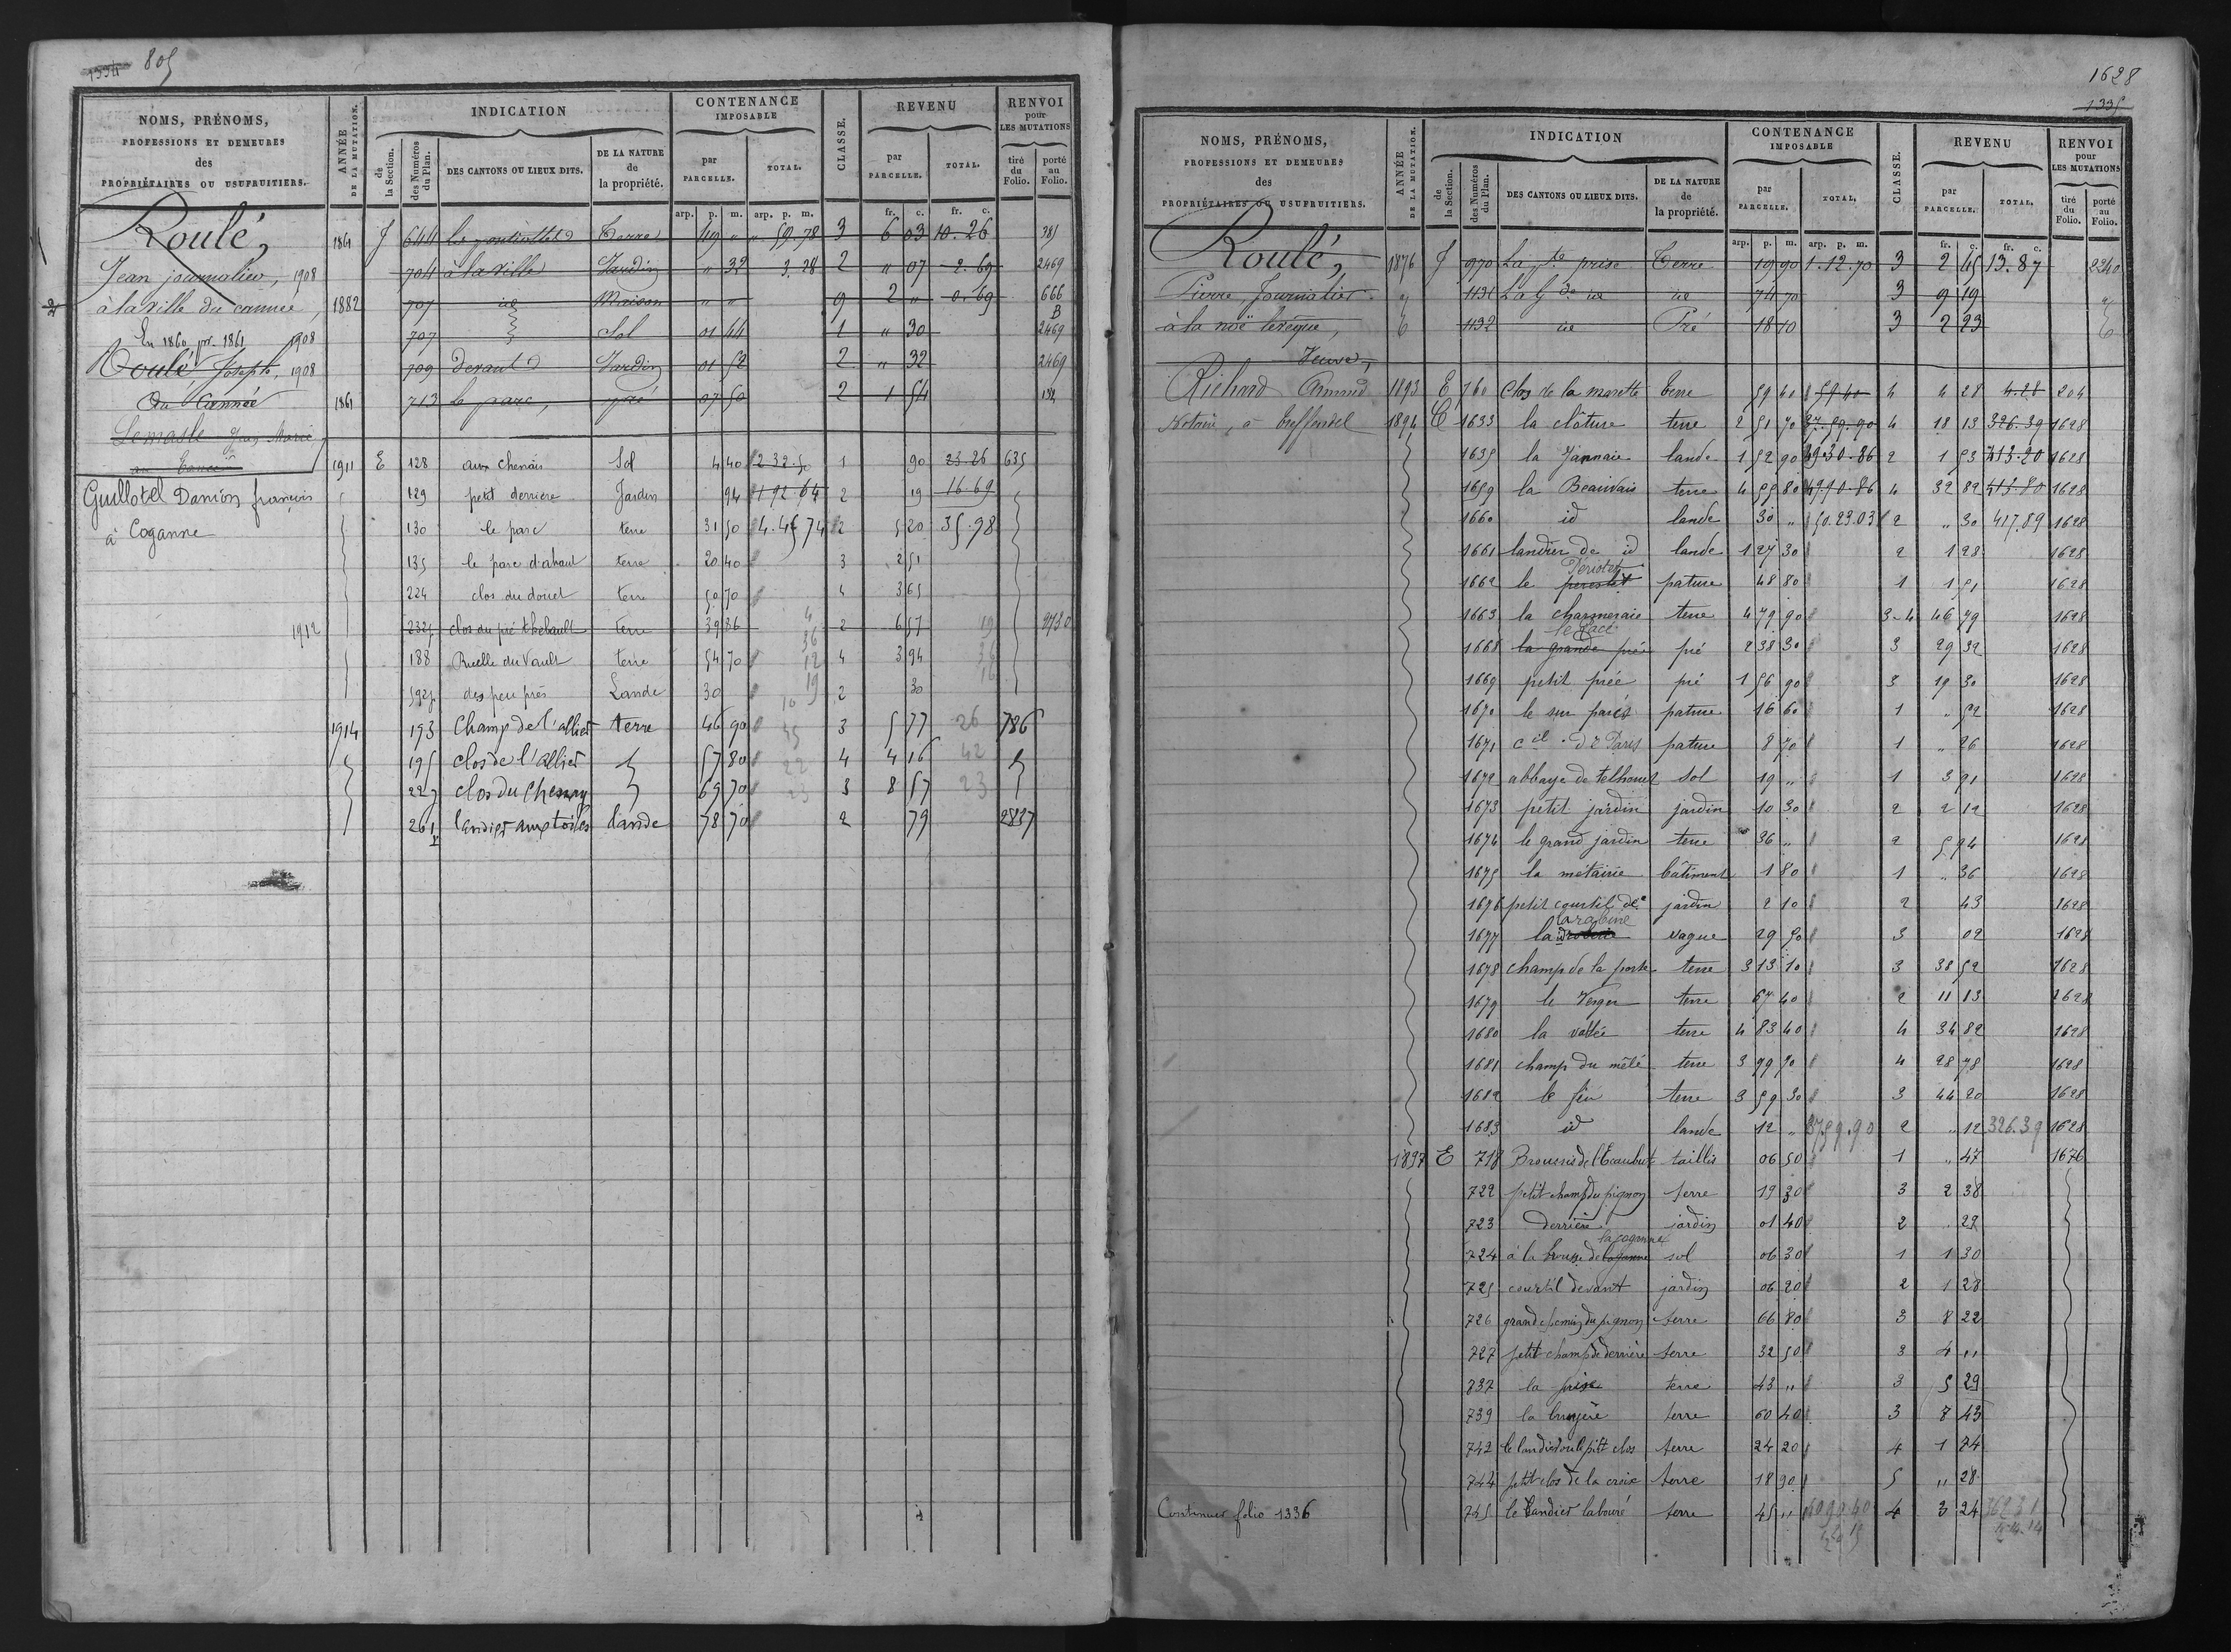 1334 805
NOMS, PRÉNOMS, PROFESSIONS ET DEMEURES des PROPRIÉTAIRES OU USUFRUITIERS. ANNÉE DE LA MUTATION. INDICATION de la Section. des Numéros du Plan. DES CANTONS OU LIEUX DITS. DE LA NATURE de la propriété. CONTENANCE IMPOSABLE par PARCELLE. TOTAL. CLASSE. REVENU par PARCELLE. TOTAL. RENVOI pour LES MUTATIONS tiré du Folio. porté au Folio.
arp. p. m. arp. p. m. fr. c. fr. c.
Roulé, 1861 J 644 Terre 49 " " 59.78 3 6 03 10.26 385
Jean journalier, 1908 704 à la ville Jardin " 32 3.28 2 " 07 2.69 2469
à la ville du cannée, 1882 705 id Maison " " 9 2 " 0.69 666
En 1860 pr. 1861 1908 707 Sol 01 44 1 " 30 B 2469
Roulé, Joseph, 1908 709 devant Jardin 01 52 2 " 32 2469
du Cannée 1861 713 le parc, pré 07 50 2 1 54
Lemasle
1911 E 128 aux chenais Sol 4 40 2.32.50 1 90 23.26 635
Guillotel Danion françois 129 petit derrière Jardin 94 1 92.64 2 19 16.69
à Coganne 130 le parc terre 31 50 4.45 74 2 5 20 35.98
135 le parc d'ahaut terre 20 40 3 2 51
224 clos du douet terre 50 70 4 3 65
1912 232 clos du pré thebault terre 39 86 2 6 57 2730
188 Ruelle du Vault terre 54 70 4 3 94
592 des peu prés Lande 30 2 30
1914 193 Champ de l'alliet terre 46 90 3 5 77 26 786
195 clos de l'alliet 57 80 4 4 16 42
227 clos du Chesnay 69 70 3 8 57 23
261 landier aux toiles lande 78 70 2 79 2837
1628
1335
NOMS, PRÉNOMS, PROFESSIONS ET DEMEURES des PROPRIÉTAIRES OU USUFRUITIERS. ANNÉE DE LA MUTATION. INDICATION de la Section. des Numéros du Plan. DES CANTONS OU LIEUX DITS. DE LA NATURE de la propriété. CONTENANCE IMPOSABLE par PARCELLE. TOTAL. CLASSE. REVENU par PARCELLE. TOTAL. RENVOI pour LES MUTATIONS tiré du Folio. porté au Folio.
arp. p. m. arp. p. m. fr. c. fr. c.
Roulé, 1876 J 970 La pte prise Terre 19 90 1.12.70 3 2 45 13.87 2340
Pierre, Journalier 1131 La Gde id id 74 70 3 9 19
à la noë levêque, 1132 id Pré 18 10 3 2 23
Veuve,
Richard Armand 1893 E 160 Clos de la marette terre 59 40 59 40 4 4 28 4.28 204
Notaire, à treffendel 1894 C 1633 la clôture terre 2 51 70 37.59.90 4 18 13 326.39 1628
1635 la Jannaie lande 1 52 90 49.30.86 2 1 53 413.20 1628
1659 la Beauvais terre 4 55 80 49.90.86 4 32 82 413.80 1628
1660 id lande 30 " 50.23.03 2 " 30 417.89 1628
1661 landier de id lande 1 27 30 2 1 28 1628
1662 le pâture 48 80 1 1 51 1628
1663 la charmeraie terre 4 79 90 3-4 46 79 1628
1668 la grande prée pré 2 38 30 3 29 32 1628
1669 petit prée pré 1 56 90 3 19 30 1628
1670 le sur parés pature 16 60 1 " 52 1628
1671 cil de Paris pature 8 70 1 " 26 1628
1672 abbaye de telhouet sol 19 " 1 3 91 1628
1673 petit jardin jardin 10 30 2 2 12 1628
1674 le grand jardin terre 36 " 2 5 94 1628
1675 la métairie bâtiment 1 80 1 " 36 1628
1676 petit courtil de jardin 2 10 2 43 1628
larabine
1677 la vague 29 50 3 02 1628
1678 champ de la porte terre 3 13 10 3 38 52 1628
1679 le Verger terre 67 40 2 11 13 1628
1680 la vallée terre 4 83 40 4 34 82 1628
1681 champ du mêlé terre 3 99 70 4 28 78 1628
1682 le feu terre 3 59 30 3 44 20 1628
1683 id lande 12 " 37.59.90 2 " 12 326.39 1628
1897 E 718 taillis 06 50 1 " 47 1676
722 petit champ du pignon terre 19 30 3 2 38
723 derrière jardin 01 40 2 " 29
la coganne
724 à la sol 06 30 1 1 30
725 courtil devant jardin 06 20 2 1 28
726 grand du pignon terre 66 80 3 8 22
727 petit champ de derrière terre 32 50 3 4 "
737 la prise terre 43 " 3 5 29
739 la bruyère terre 60 40 3 7 43
742 le landier ou le ptit clos terre 24 20 4 1 74
744 petit clos de la croix terre 18 90 5 " 28
Continuer folio 1336 745 le landier labouré terre 45 " 4 3 24